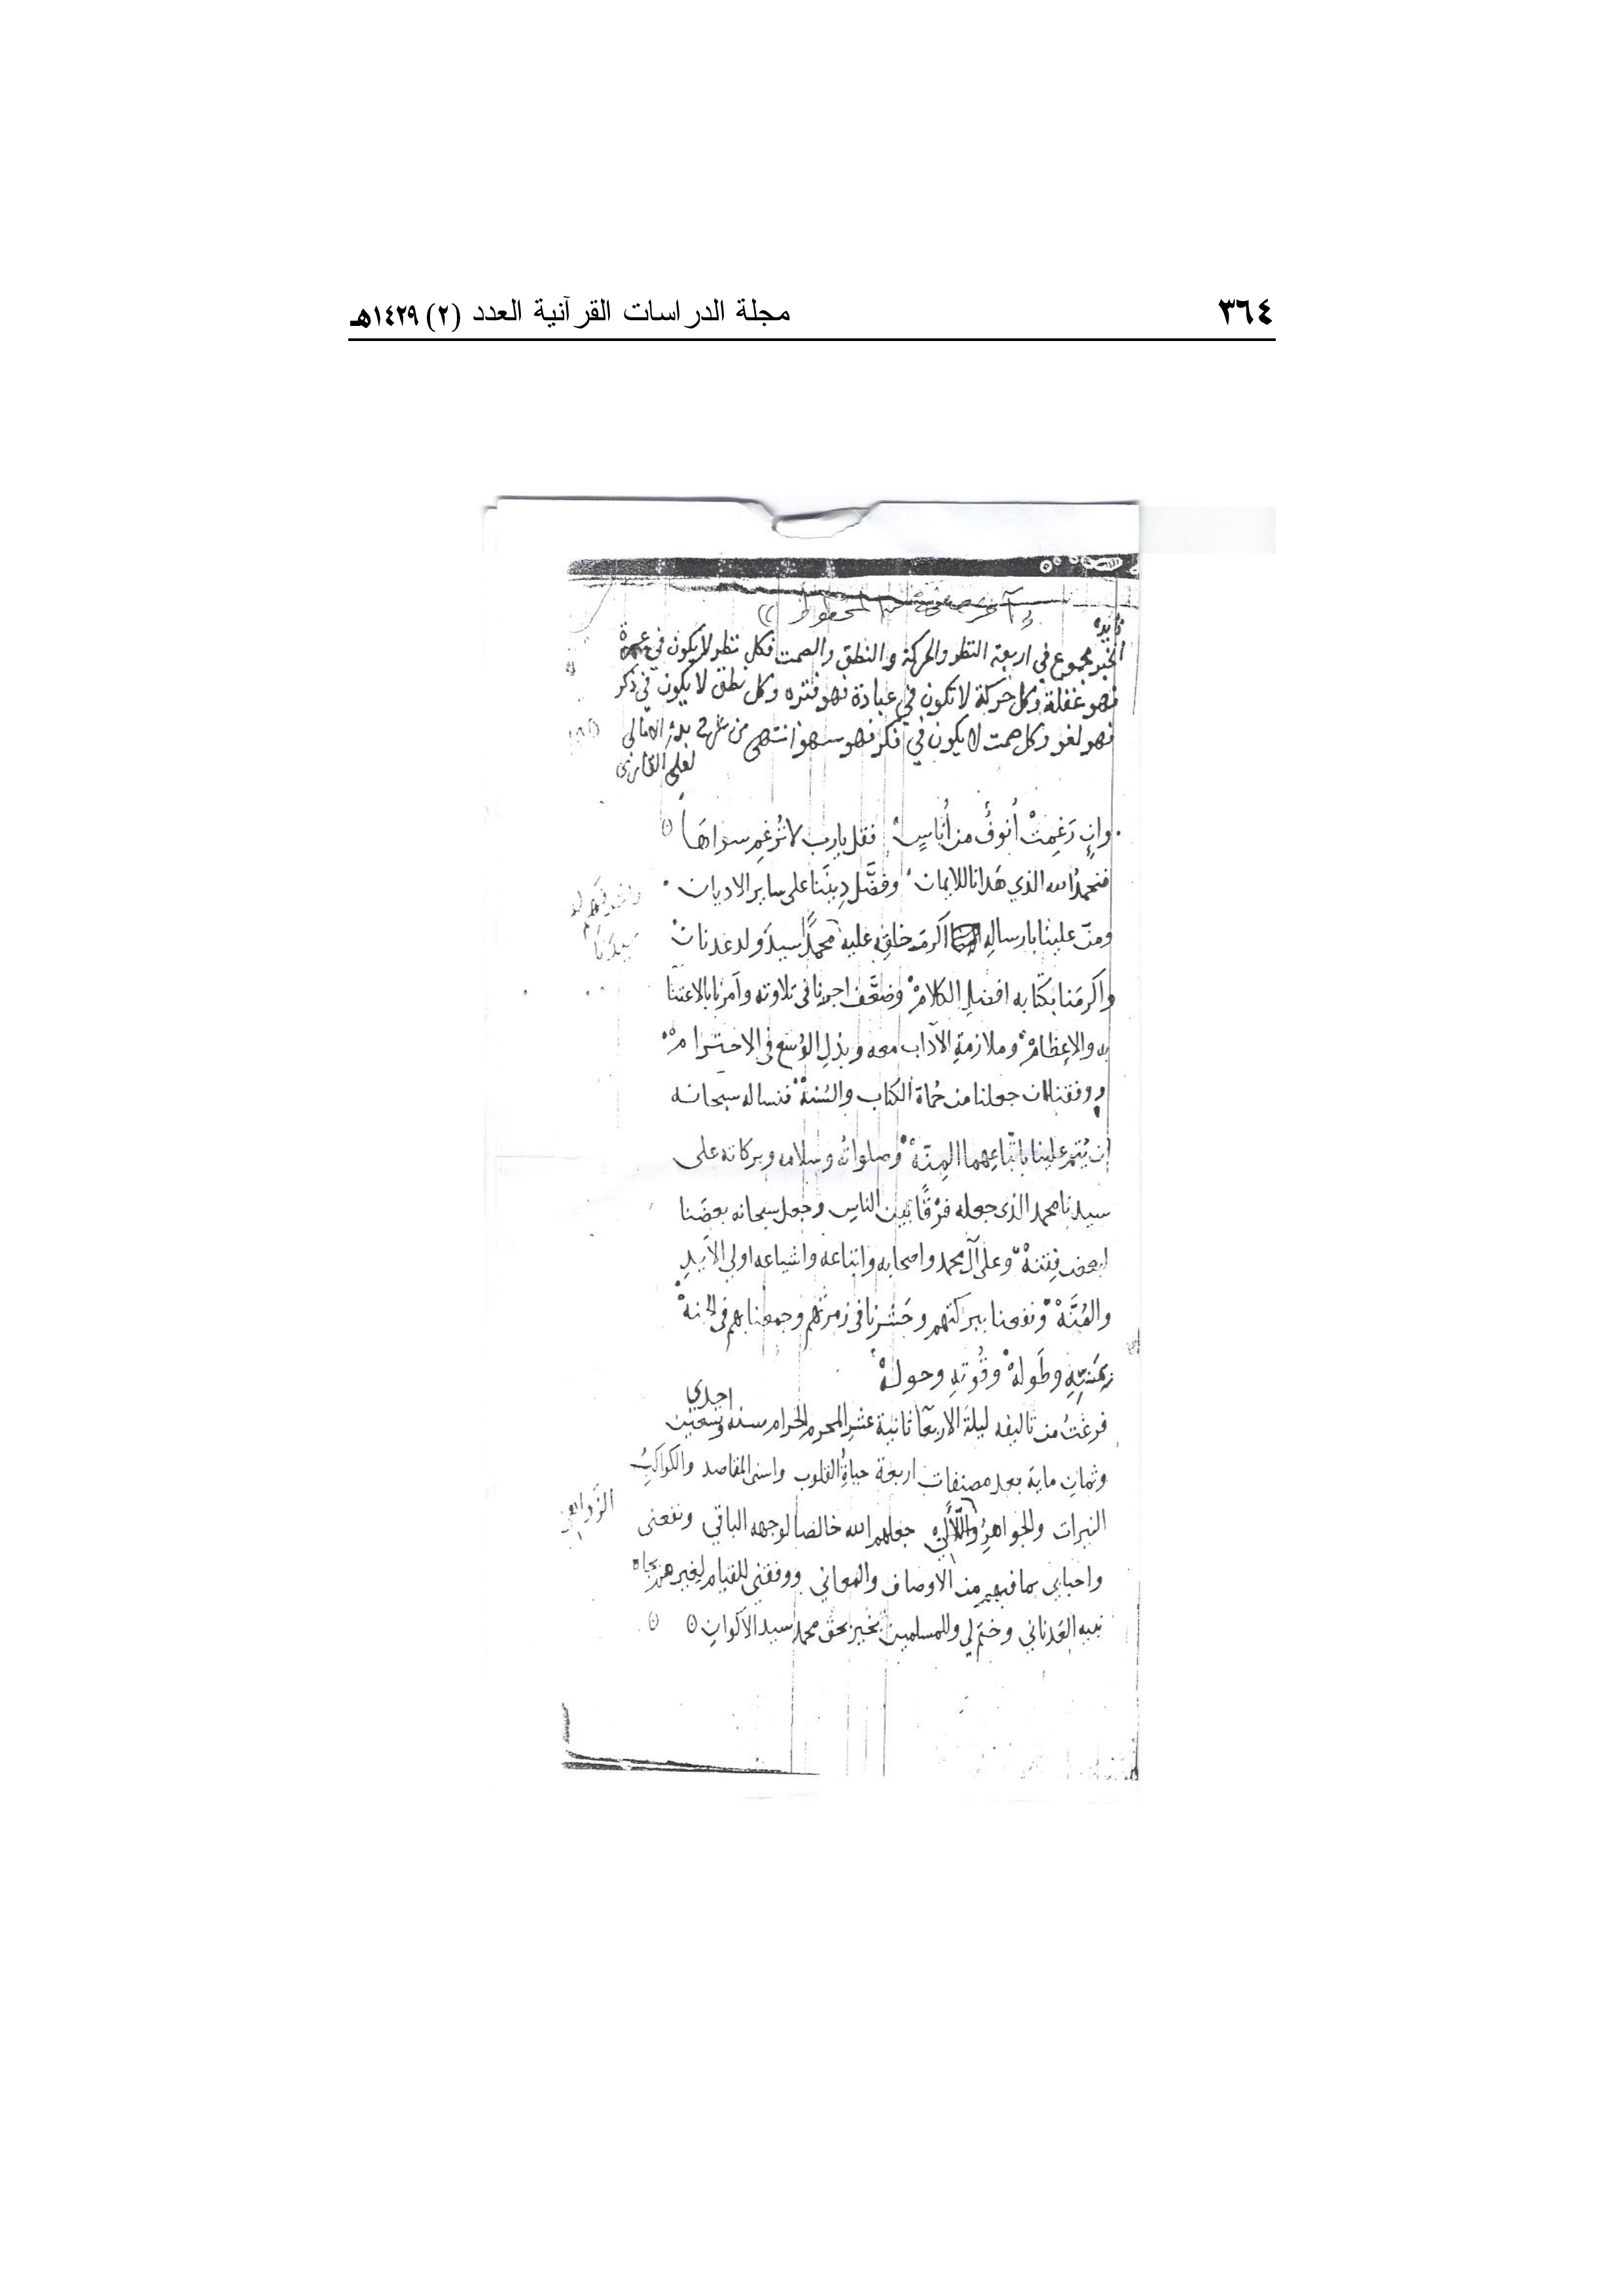 ٣٦٤
مجلة الدراسات القرآنية العدد (٢) ١٤٢٩هـ
(( آخر صفحة من المخطوط ))
فائدة
الخير مجموع في اربعة النظر والحركة والنطق والصمت فكل نظر لا يكون في عبرة
فهو غفلة وكل حركة لا تكون في عبادة فهو فتره وكل نطق لا يكون في ذكر
فهو لغو وكل صمت لا يكون في فكر فهو سهو انتهى من شرح بدء الامالي
لعلي القاري
وإن رَغِمتْ أُنوفٌ من أُناسٍ فقل يا رب لا تُرغِم سواها
فنحمدُ الله الذي هَدانا للايمان وفضَّل دِينَنا على ساير الاديان
ومنّ علينا بارسالِه اكرمَ خلقِه عليه محمدًا سيدَ ولد عدنان
واكرمَنا بكتابه افضلِ الكلامْ وضعَّف اجرنا في تلاوته وآمرنا بالاعتنا
به والإعظامْ وملازمةِ الآداب معه وبذلِ الوُسْع في الاحترامْ
ووفقنا لان جعلنا من حُماة الكتاب والسُنةْ فنساله سبحانه
ان يُتم علينا باتّباعِهما المِنّةْ وصلواتُه وسلامه وبركاته على
سيدنا محمد الذي جعله فَرْقًا بين الناسِ وجعل سبحانه بعضَنا
لبعض فِتنةْ وعلى آل محمد واصحابه واتباعه واشياعه اولي الأيدِ
والمُنَّةْ ونفعنا ببركتهم وحَشرنا في زمرتهم وجمعنا بهم في الجنةْ
بمَنِّهِ وطَولهْ وقُوتِهِ وحولهْ
فرغتُ من تاليفه ليلة الاربعآ ثانية عشر المحرم الحرام سنة احدي وتسعين
وثمانِ ماية بعد مصنفات اربعة حياةُ القلوب واسنى المقاصد والكواكبُ
النيرات والجواهرُ واللآلئ جعلهم الله خالصا لوجهه الباقي ونفعني
واحبابي بما فيهم من الاوصاف والمعاني ووفقني للقيام لغيرهن بجاه
نبيه العدناني وختم لي وللمسلمين بخير بحق محمد سيد الاكوان